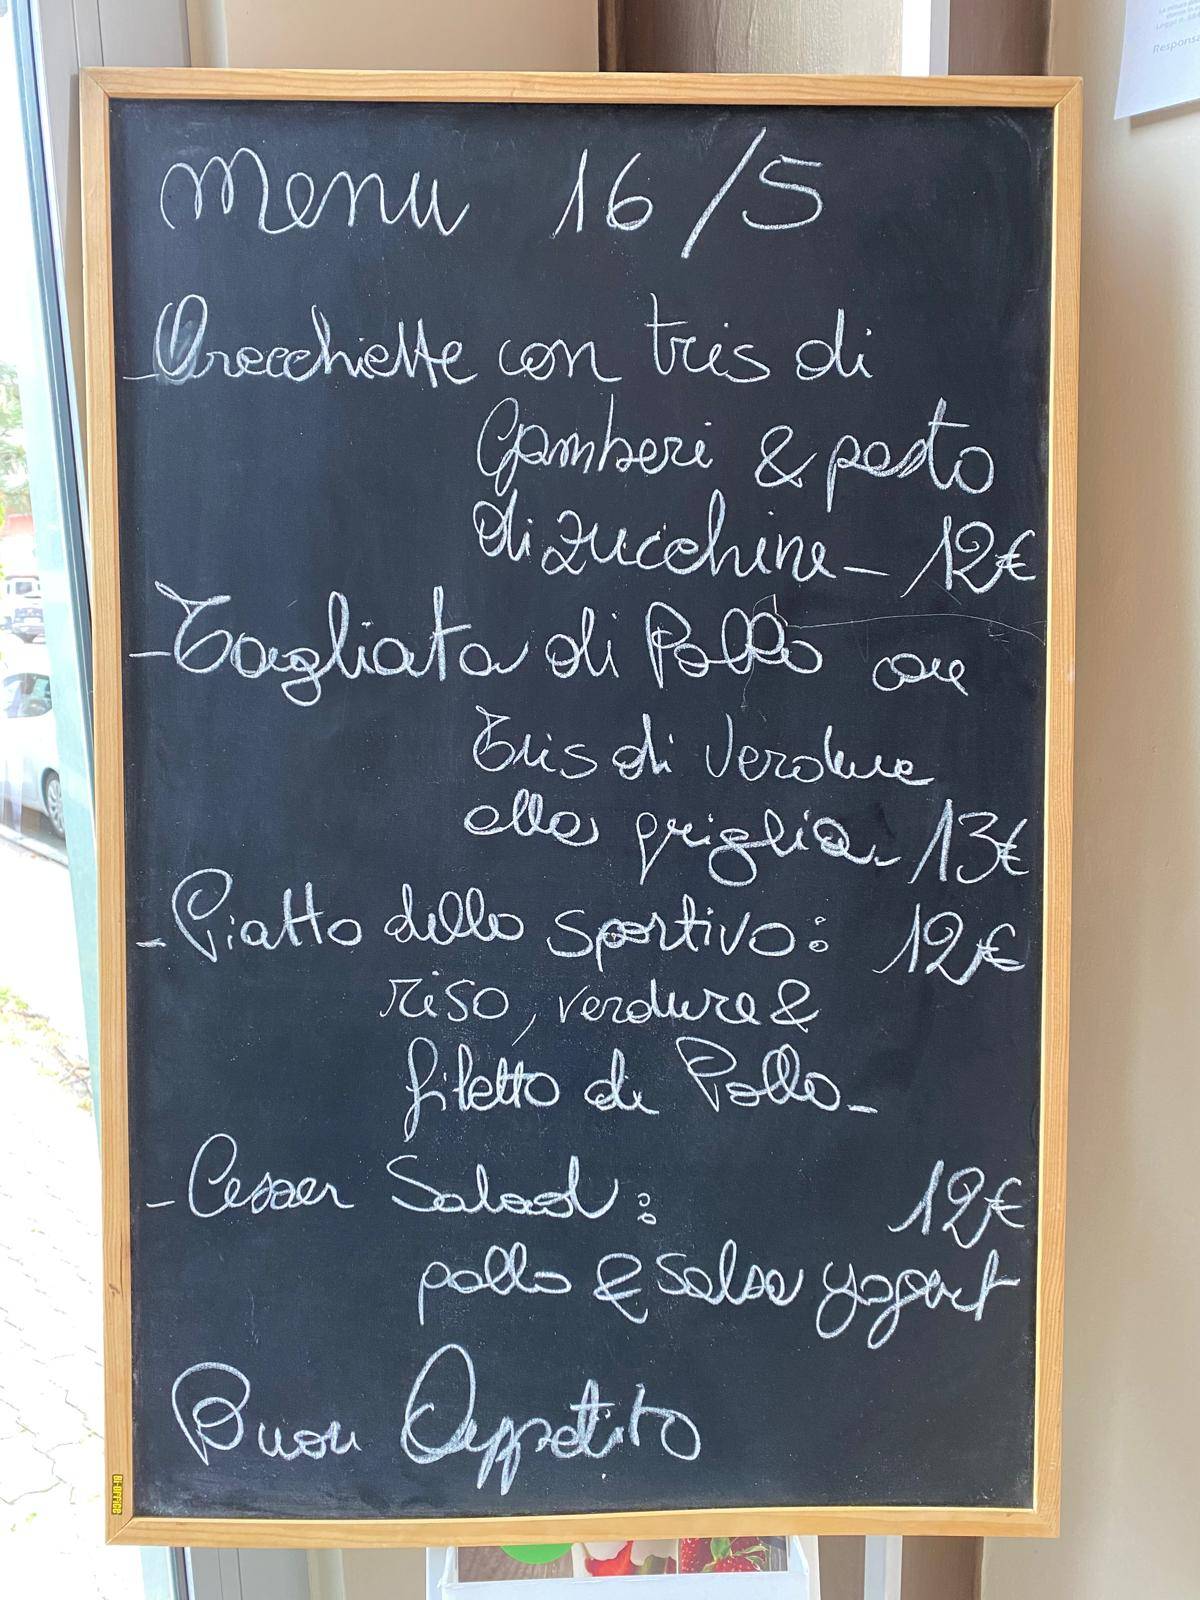 Menu 16/5
- Orecchiette con tris di
Gamberi & pesto
di zucchine - 12€
- Tagliata di Pollo con
Tris di Verdure
alla griglia - 13€
- Piatto dello sportivo: 12€
riso, verdure &
filetto di Pollo -
- Cesaer Salad: 12€
pollo & salsa yogurt
Buon Appetito
BI-OFFICE
Responsa